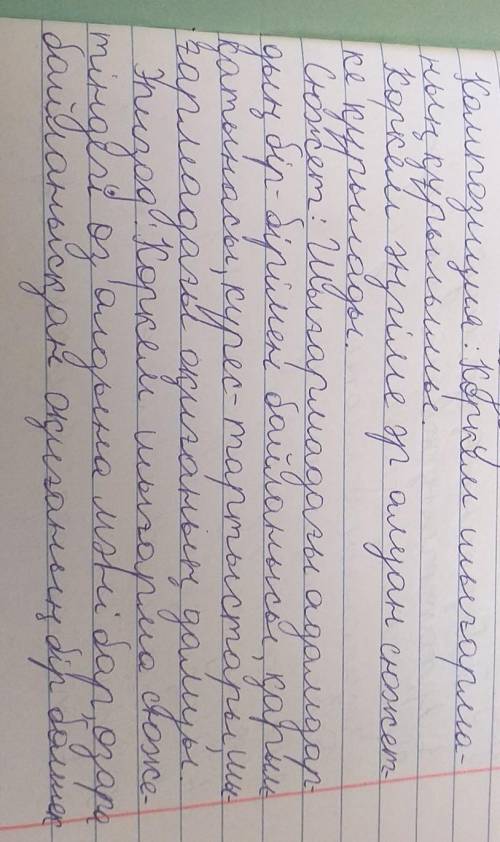 Композиция: Көркем шығарма-
ның құрылымы.
Көркем әңгіме әр алуан сюжет-
ке құрылады.
Сюжет: Шығармадағы адамдар-
дың бір-бірімен байланысы, қарым
қатынасы, күрес-тартыстары, шы-
ғармадағы оқиғаның дамуы.
Эпизод: Көркем шығарма сюже-
тіндегі өз алдына мәні бар, өзара
байланысқан оқиғаның бір бөлшег